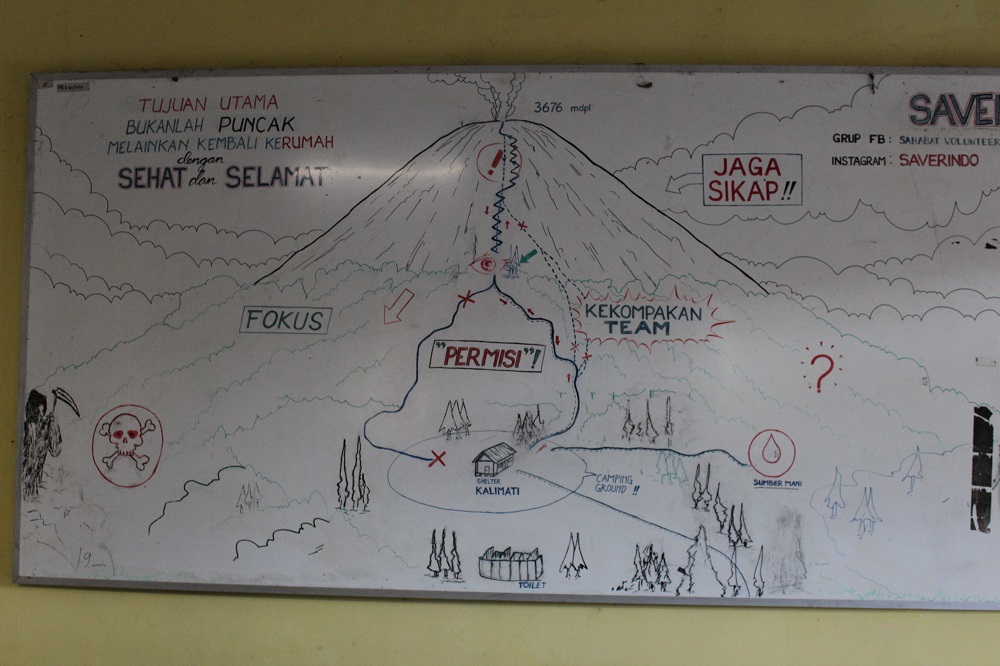 TUJUAN UTAMA
BUKANLAH PUNCAK
MELAINKAN KEMBALI KERUMAH
dengan
SEHAT dan SELAMAT
3676 mdpl
SAVER
GRUP FB : SAHABAT VOLUNTEER
INSTAGRAM : SAVERINDO
JAGA
SIKAP!!
!
FOKUS
KEKOMPAKAN
TEAM
"PERMISI"!
?
SHELTER
KALIMATI
CAMPING
GROUND !!
SUMBER MANI
TOILET